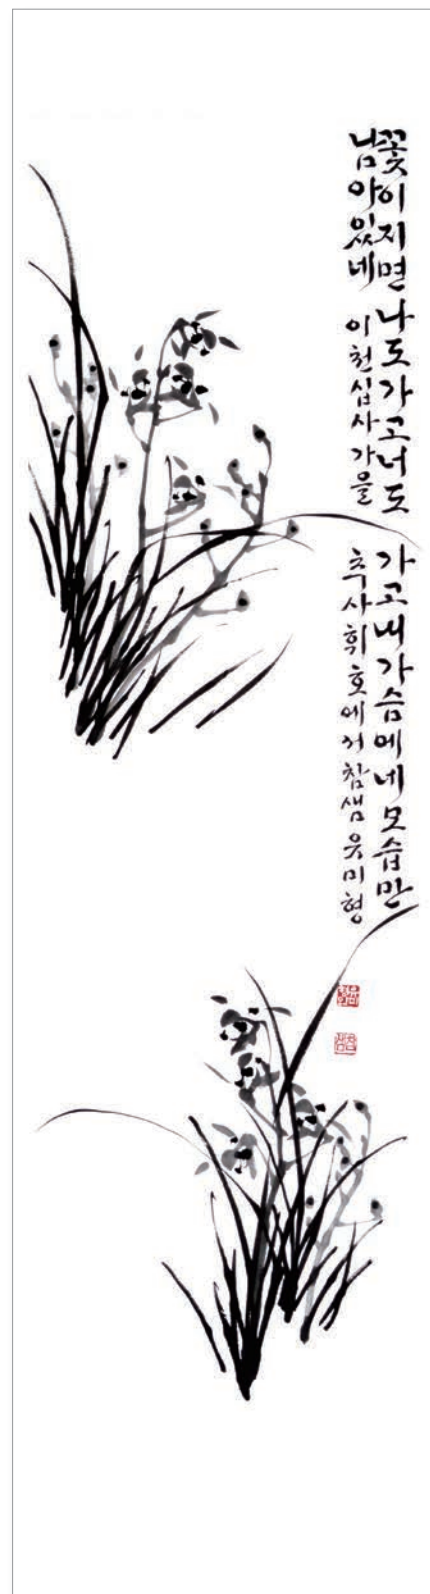 꽃이지면 나도가고너도 가고내가슴에네모습만
남아있네 이천십사가을 추사휘호에서 참샘 윤미형